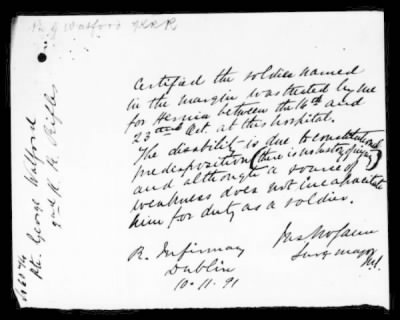 Pt G Walford KRR
Certified the soldier named
in the margin was treated by me
for Hernia between the 16th and
23rd Oct. at this hospital.
The disability is due to constitutional
predisposition (there is no history of injury)
and although a source of
weakness does not incapacitate
him for duty as a soldier.
R. Infirmary
Dublin
10.11.91
Surg Major
Pte George Walford
2nd K. R. Rifles